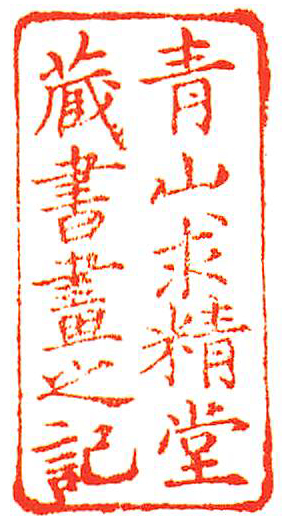 青山求精堂
蔵書畫之記